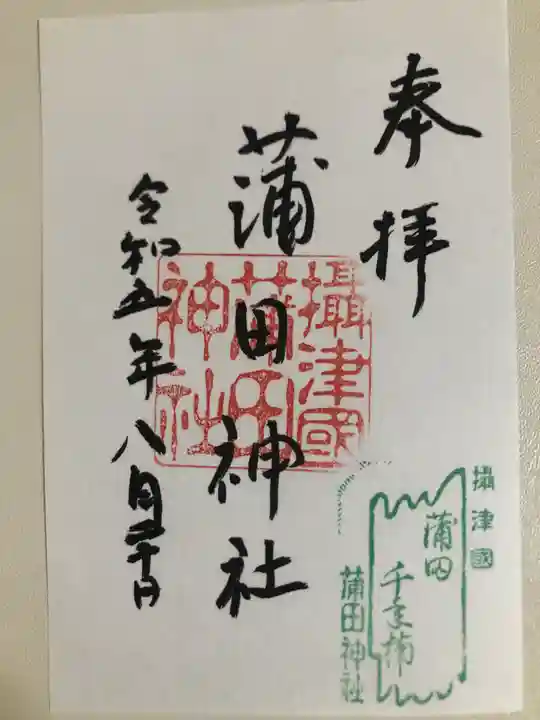 奉拝
蒲田神社
攝津國
蒲田
神社
令和五年八月
攝津國
蒲田
千年
蒲田神社